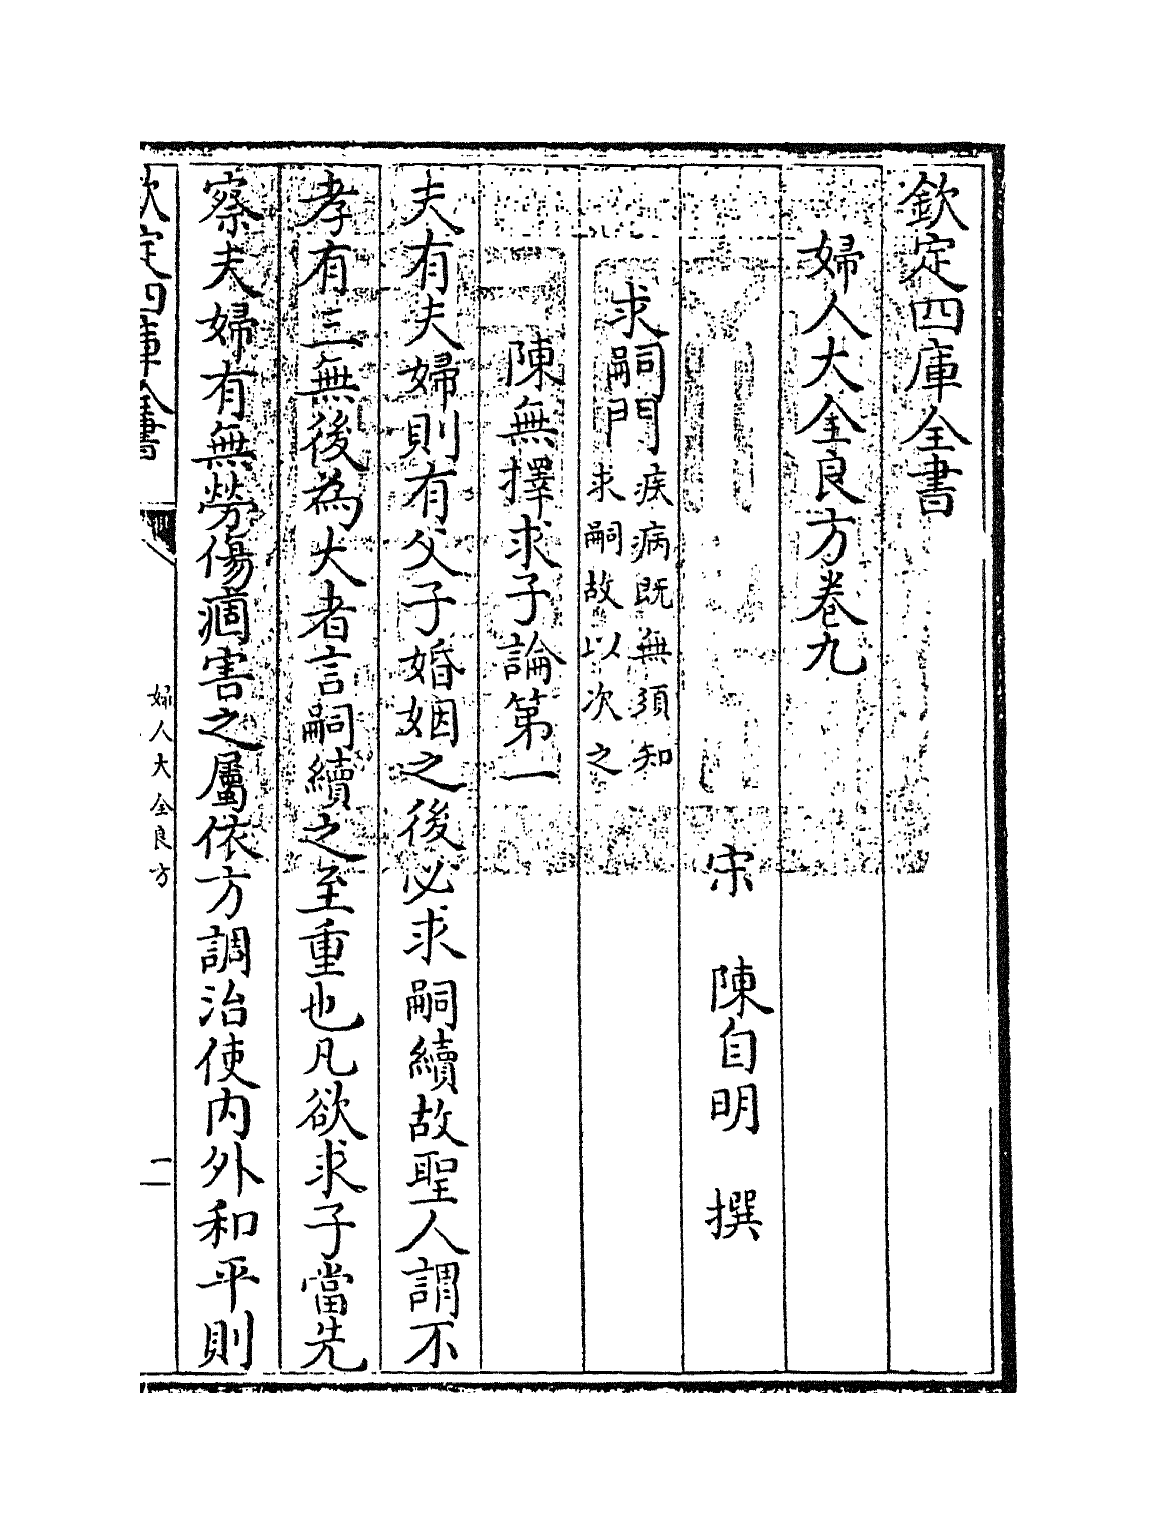 欽定四庫全書
婦人大全良方卷九
宋　陳自明　撰
求嗣門疾病既無須知求嗣故以次之
陳無擇求子論第一
夫有夫婦則有父子婚姻之後必求嗣續故聖人謂不
孝有三無後為大者言嗣續之至重也凡欲求子當先
察夫婦有無勞傷痼害之屬依方調治使內外和平則
欽定四庫全書
婦人大全良方
一